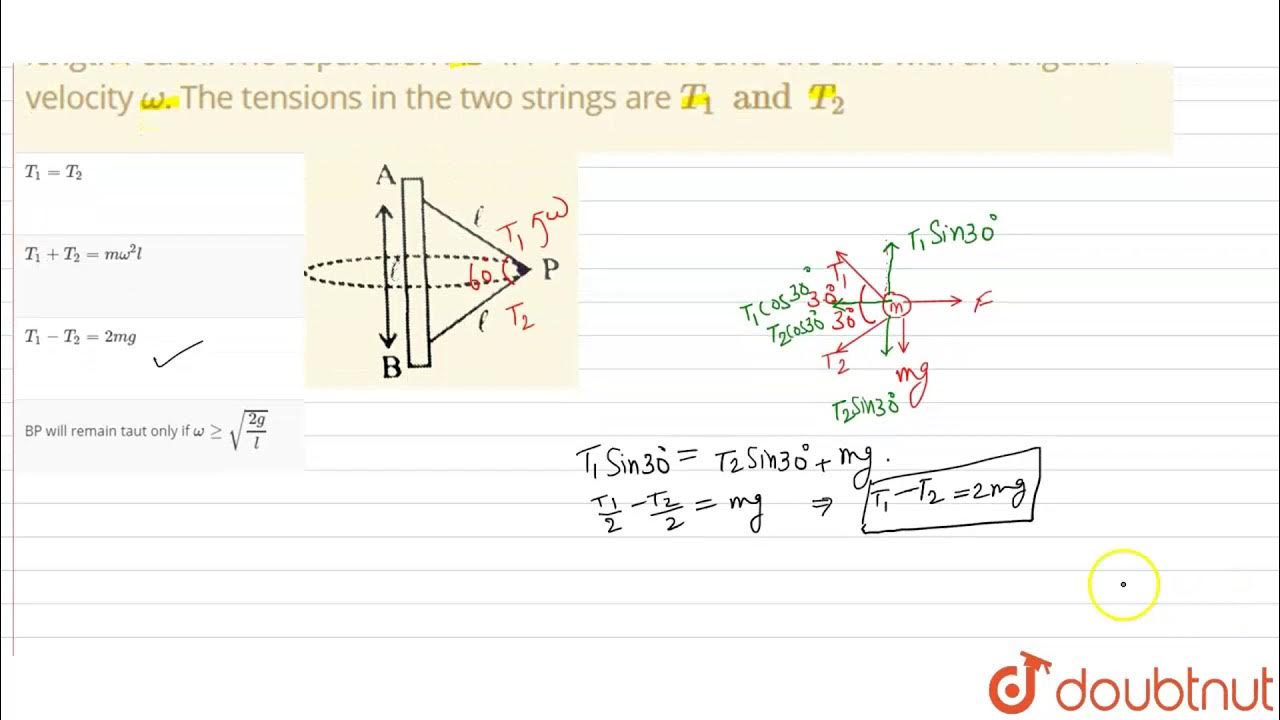 velocity ω. The tensions in the two strings are T₁ and T₂
T₁ = T₂
T₁ + T₂ = mω²l
T₁ − T₂ = 2mg
BP will remain taut only if ω ≥ √(2g/l)
A
l
T₁ ω
l
60°
P
l
T₂
B
T₁ Sin30°
T₁
T₁cos30° 30°
m
F
T₂cos30° 30°
T₂
mg
T₂Sin30°
T₁Sin30° = T₂Sin30° + mg.
T₁/2 − T₂/2 = mg ⇒ T₁ − T₂ = 2mg
doubtnut